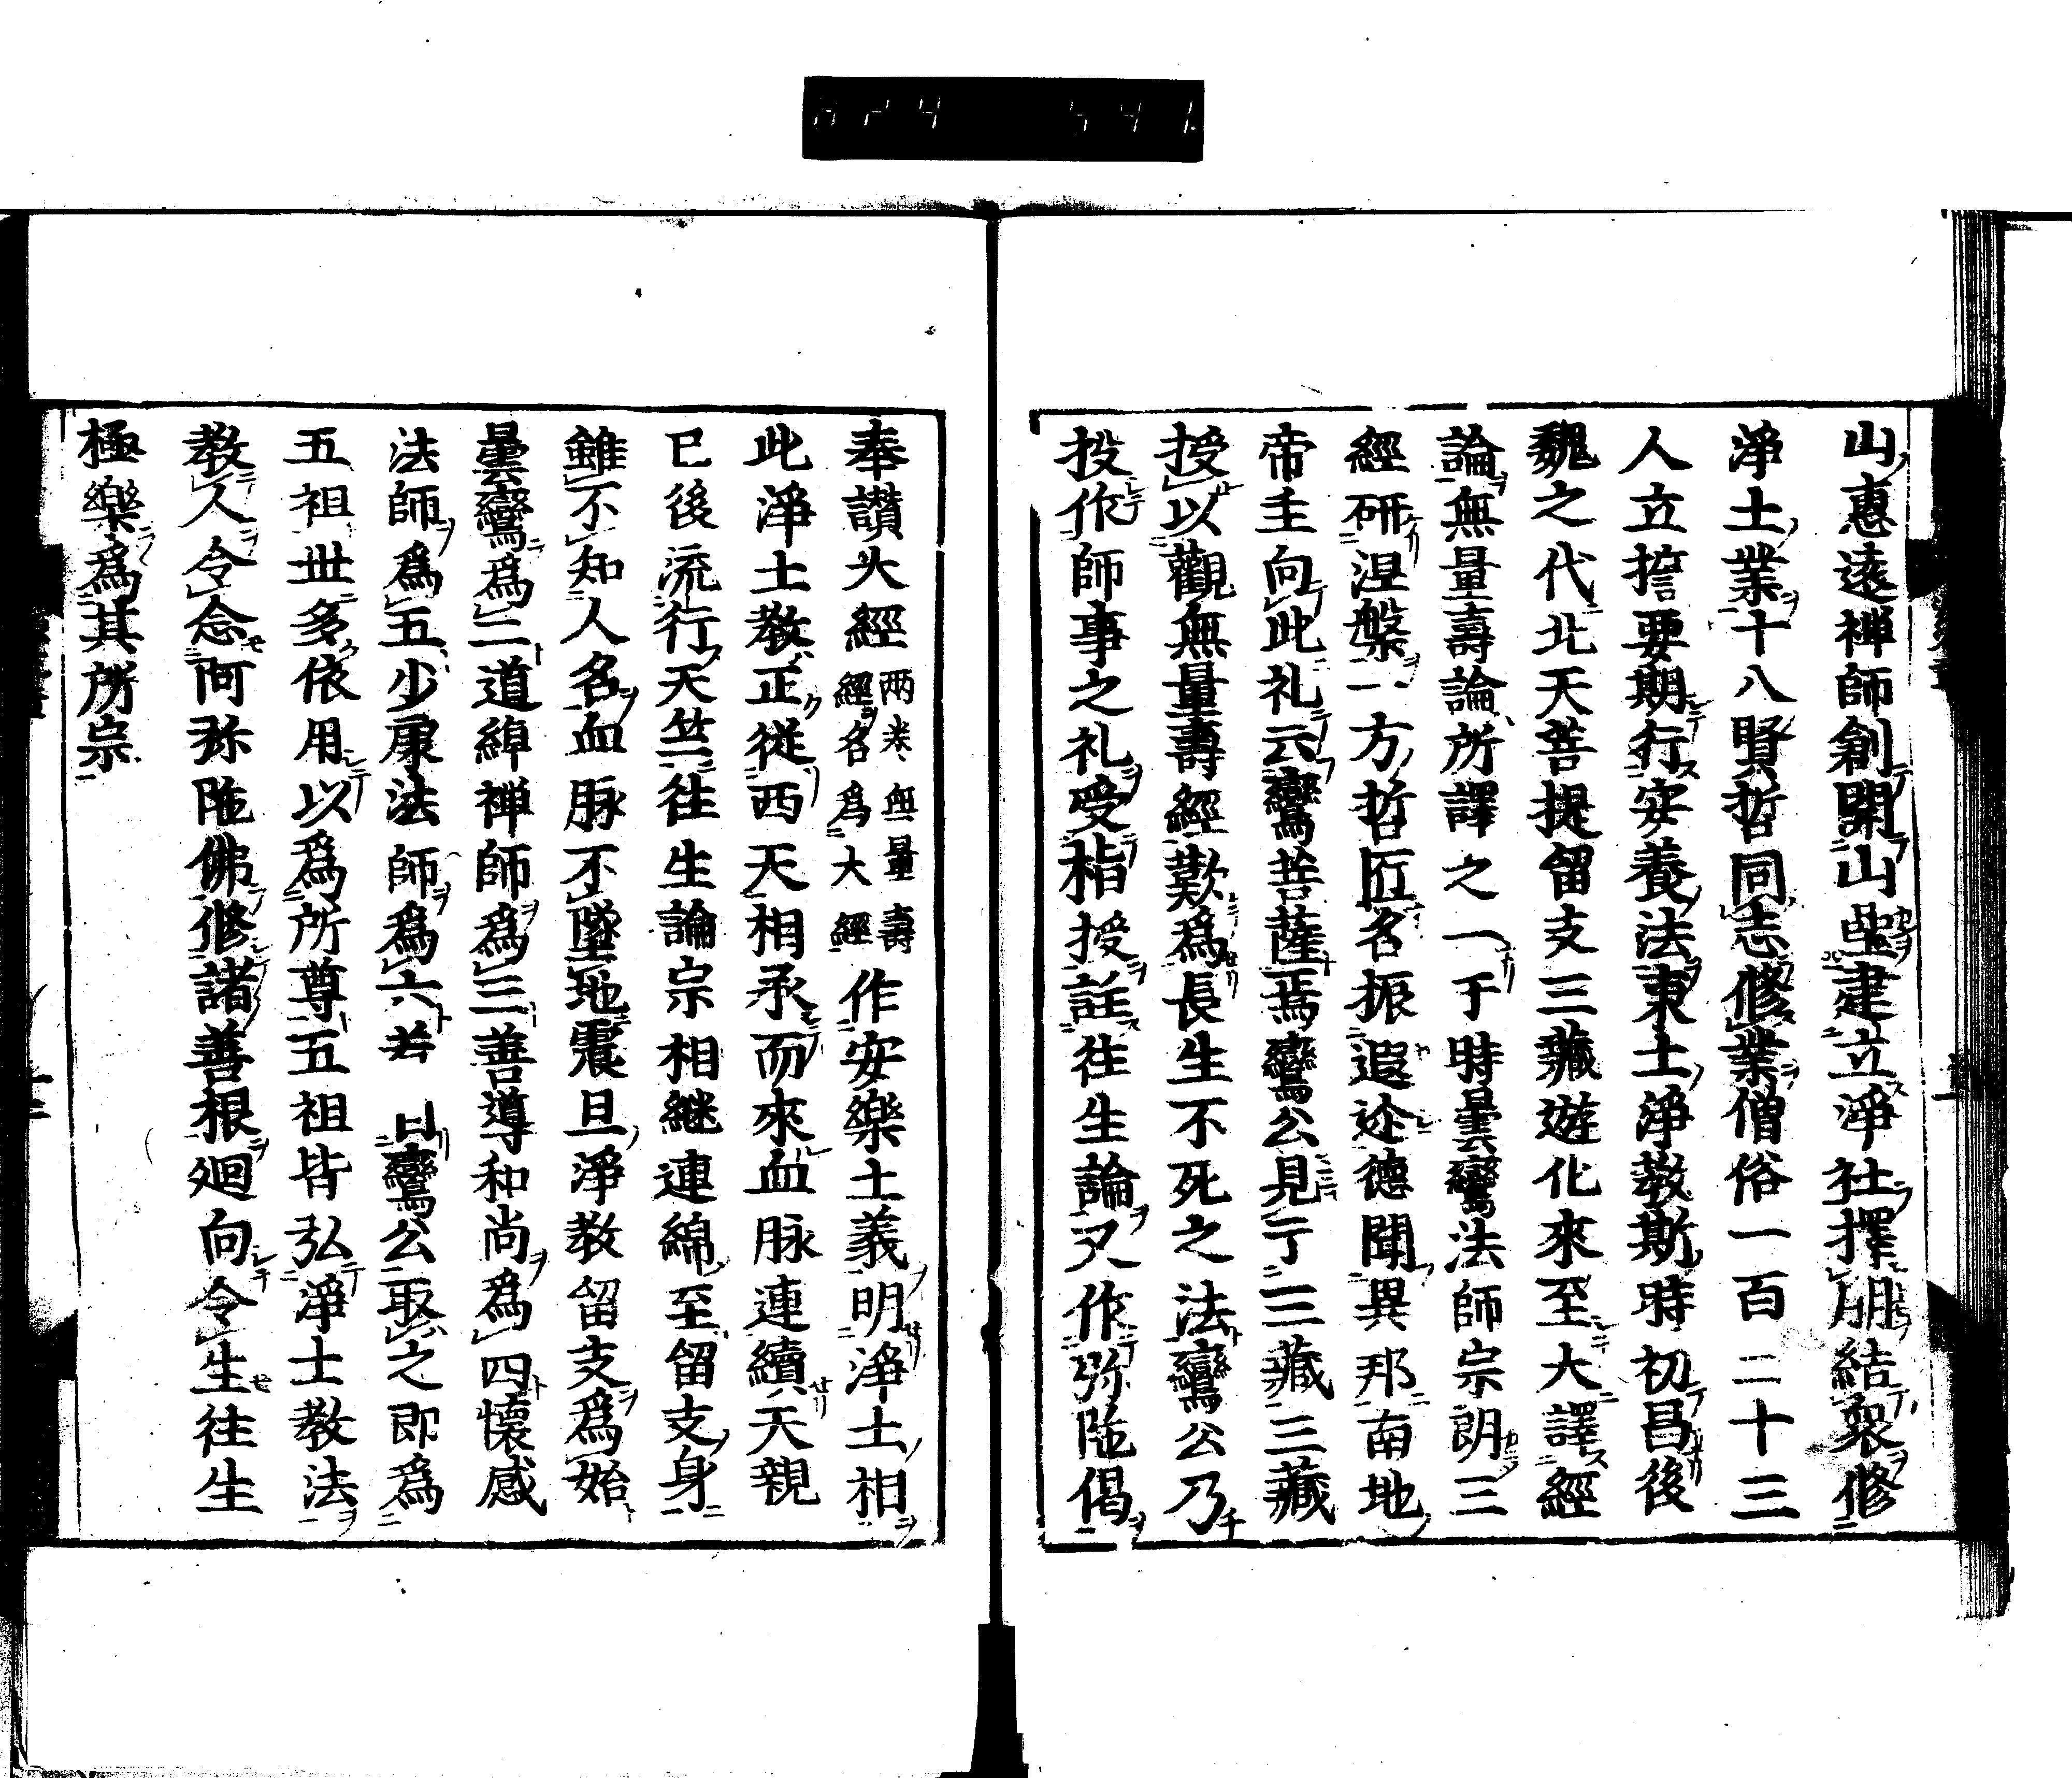 山惠遠禅師創開山壘建立淨社擇朋結衆修
淨土業十八賢哲同志修業僧俗一百二十三
人立誓要期行安養法東土淨教斯時初昌後
魏之代北天菩提留支三藏遊化來至大譯經
論無量壽論所譯之一于時曇鸞法師宗朗三
經研涅槃一方哲匠名振遐迩德聞異邦南地
帝主向此礼云鸞菩薩焉鸞公見于三藏三藏
授以觀無量壽經歎爲長生不死之法鸞公乃
投作師事之礼受指授註往生論又作弥陀偈
奉讃大經兩卷無量壽經名爲大經作安樂土義明淨土相
此淨土教正從西天相承而來血脉連續天親
已後流行天竺往生論宗相継連綿至留支身
雖不知人名血脉不墜地震旦淨教留支爲始
曇鸞爲二道綽禅師爲三善導和尚爲四懷感
法師爲五少康法師爲六若以鸞公取之即爲
五祖世多依用以爲所尊五祖皆弘淨土教法
教人令念阿弥陀佛修諸善根廻向令生往生
極樂爲其所宗